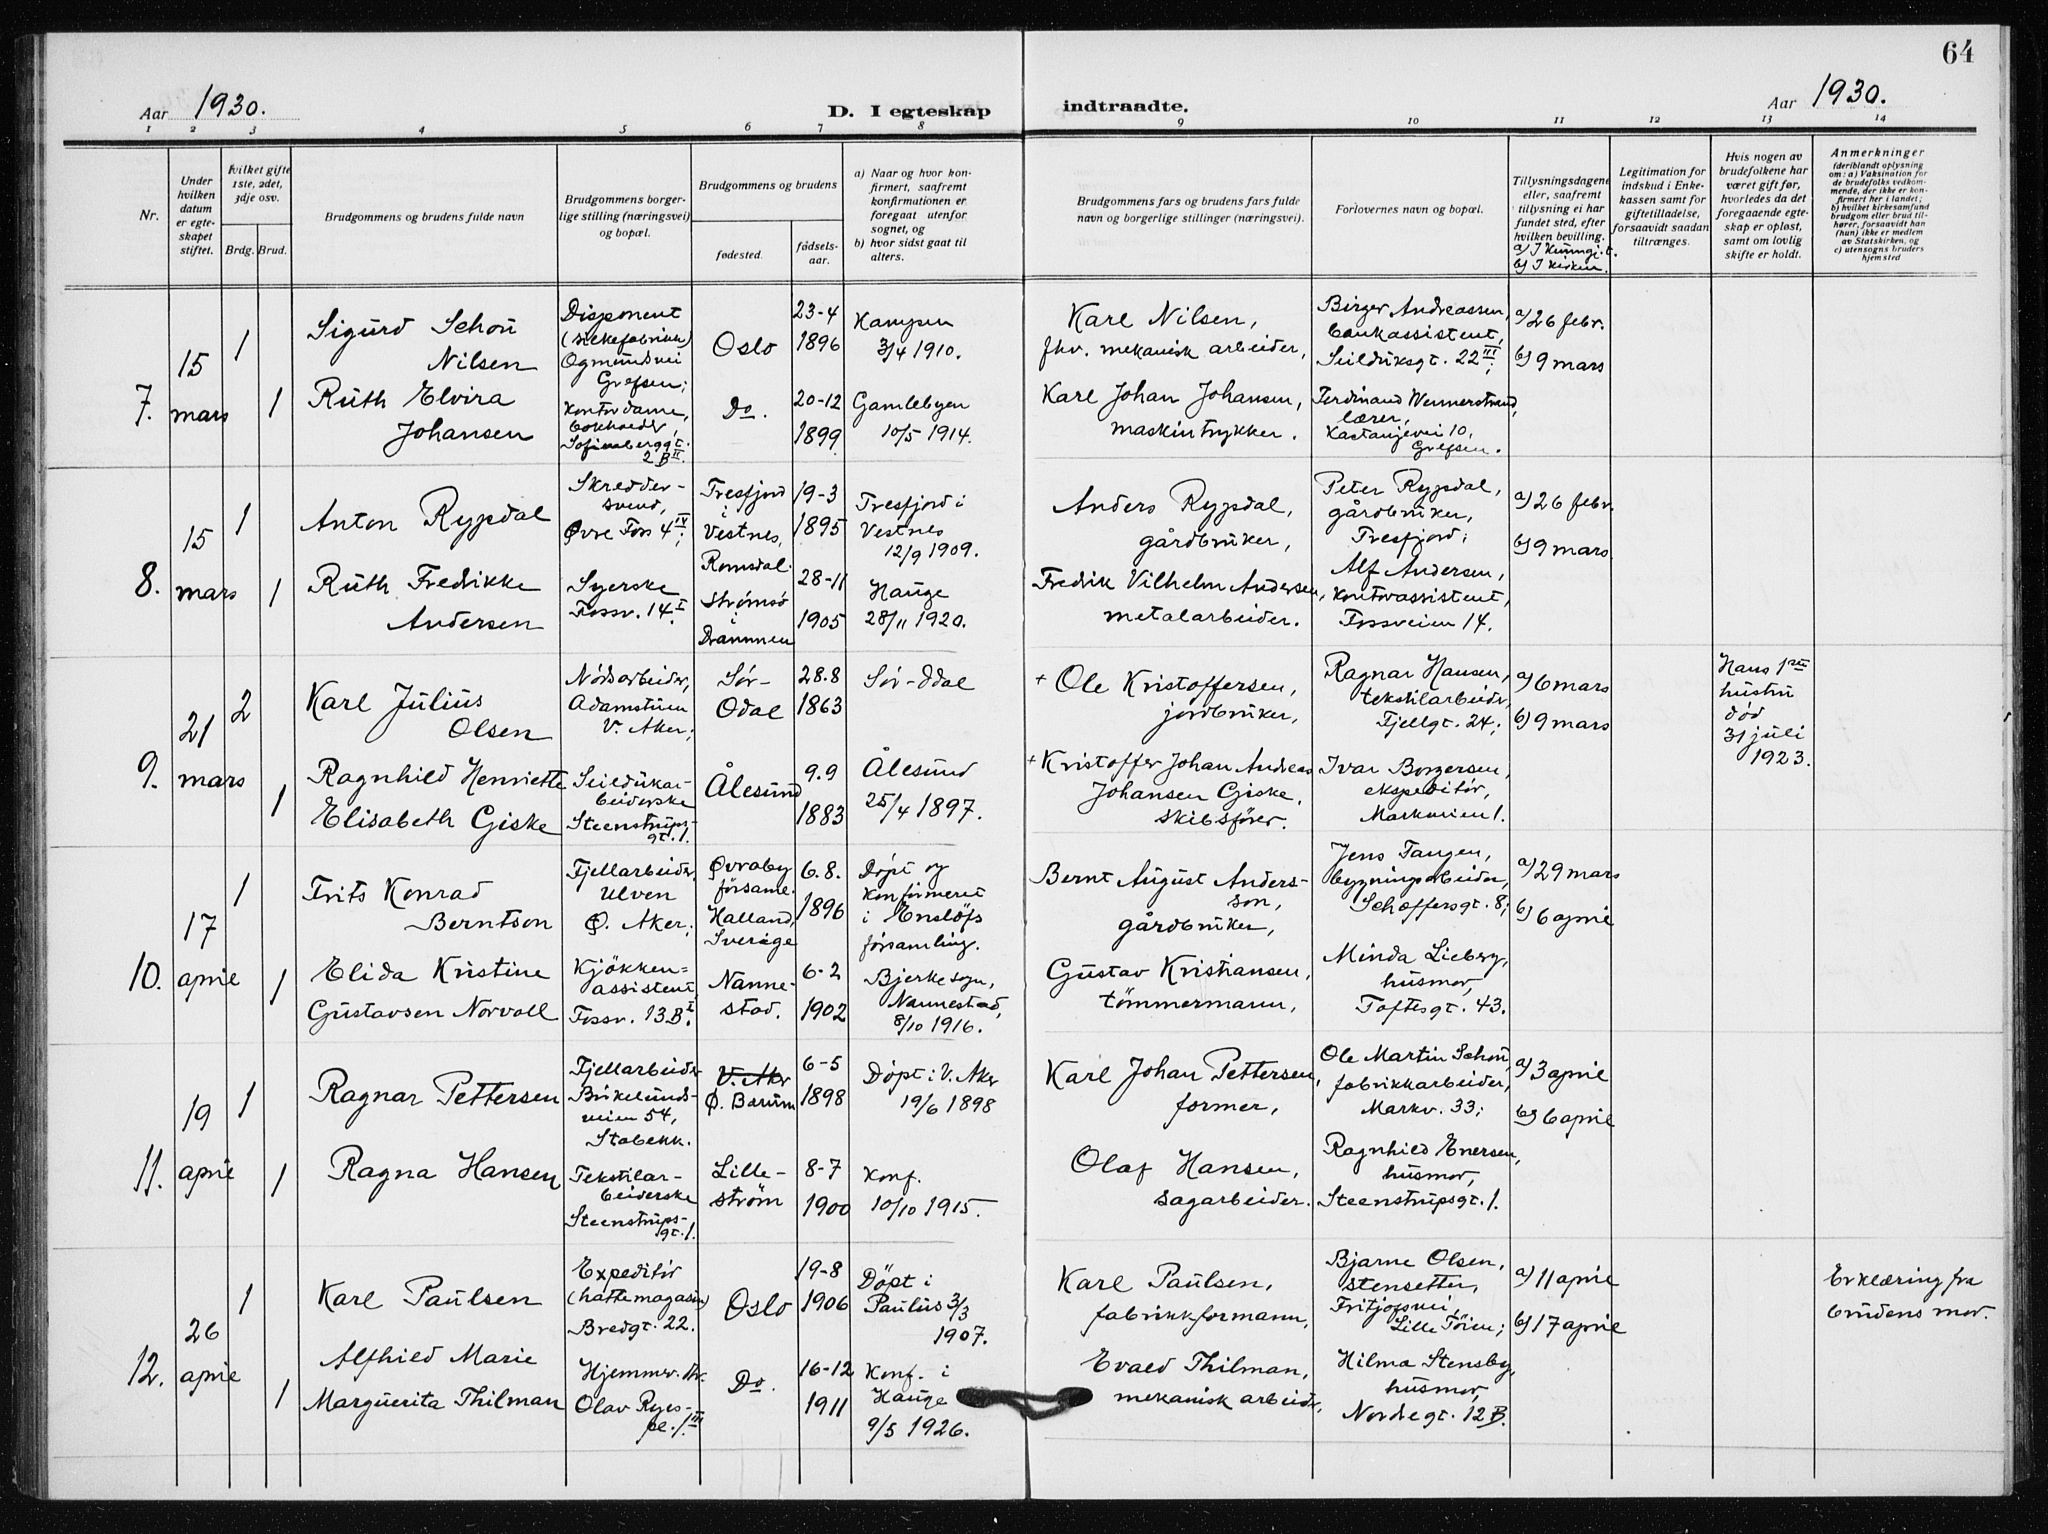 64
Aar 1930.
D. I egteskap indtraadte.
Aar 1930.
1 2 3 4 5 6 7 8 9 10 11 12 13 14
Nr.
Under
hvilken
datum
er egte-
skapet
stiftet.
Hvilket gifte
1ste, 2det,
3dje osv.
Brdg. Brud.
Brudgommens og brudens fulde navn
Brudgommens borger-
lige stilling (næringsvei)
og bopæl.
Brudgommens og brudens
fødested.
fødsels-
aar.
a) Naar og hvor kon-
firmert, saafremt
konfirmationen er
foregaat utenfor
sognet, og
b) hvor sidst gaat til
alters.
Brudgommens fars og brudens fars fulde
navn og borgerlige stillinger (næringsvei).
Forlovernes navn og bopæl.
Tillysningsdagene
eller, saafremt
tillysning ei har
fundet sted, efter
hvilken bevilling.
b) I kirken.
Legitimation for
indskud i Enke-
kassen samt for
giftetilladelse,
forsaavidt saadan
tiltrænges.
Hvis nogen av
brudefolkene har
været gift før,
hvorledes da det
foregaaende egte-
skap er opløst,
samt om lovlig
skifte er holdt.
Anmerkninger
(deriblandt oplysning
om: a) Vaksination for
de brudefolks vedkom-
mende, der ikke er kon-
firmert her i landet;
b) hvilket kirkesamfund
brudgom eller brud til-
hører, forsaavidt han
(hun) ikke er medlem
av Statskirken, og
c) utensogns bruders
hjemsted
7.
15
mars
1
Sigurd Schou
Nilsen
Disponent
Ogmundsvei
Grefsen;
Oslo
23-4
1896
Kampen
3/4 1910.
Karl Nilsen,
fhv. mekanisk arbeider,
Birger Andreassen,
bankassistent,
Seilduksgt. 22 III;
a) 26 febr.
b) 9 mars
1
Ruth Elvira
Johansen
Kontordame,
bokholder,
Sofienberggt.
2 B II.
Do.
20-12
1899
Gamlebyen
10/5 1914.
Karl Johan Johansen,
maskintrykker.
Ferdinand Wennerstrand,
lærer,
Kastanjevei 10,
Grefsen.
8.
15
mars
1
Anton Rypdal
Skredder-
svend,
Øvre Foss 4 IV;
Tresfjord
i
Vestnes,
Romsdal
19-3
1895
Tresfjord i
Vestnes
12/9 1909.
Anders Rypdal,
gårdbruker,
Peter Rypdal,
gårdbruker,
Tresfjord;
a) 26 febr.
b) 9 mars
1
Ruth Fredrikke
Andersen
Syerske
Fossv. 14 I.
Strømsø
i
Drammen
28-11
1905
Hauge
28/11 1920.
Fredrik Vilhelm Andersen,
metalarbeider.
Alf Andersen,
kontorassistent,
Fossveien 14.
9.
21
mars
2
Karl Julius
Olsen
Nødsarbeider,
Adamstuen
V. Aker;
Sør-
Odal
28.8
1863
Sør-Odal
+ Ole Kristoffersen,
jordbruker,
Ragnar Hansen,
tekstilarbeider,
Fjellgt. 24;
a) 6 mars
b) 9 mars
Hans 1ste
hustru
død
31 juli
1923.
1
Ragnhild Henriette
Elisabeth Giske
Seildukar-
beiderske
Steenstrups-
gt. 1.
Ålesund
9.9
1883
Ålesund
25/4 1897.
+ Kristoffer Johan Andreas
Johansen Giske,
skibsfører.
Ivar Borgersen,
ekspeditør,
Markveien 1.
10.
17
april
1
Frits Konrad
Berntson
Fjellarbeider,
Ulven
Ø. Aker;
Øvraby
församl.
Halland,
Sverige
6.8.
1896
Döpt og
konfirmeret
i Enslöfs
församling.
Bernt August Anders-
son,
gårdbruker,
Jens Tangen,
bygningsarbeider,
Schoffersgt. 8;
a) 29 mars
b) 6 april
1
Elida Kristine
Gustavsen Norvoll
Kjökken-
assistent,
Fossv. 13 B I.
Nanne-
stad.
6-2
1902
Bjerke sogn,
Nannestad,
8/10 1916.
Gustav Kristiansen,
tömmermann,
Minda Lieberg,
husmor,
Toftesgt. 43.
11.
19
april
1
Ragnar Pettersen
Fjellarbeider
Birkelunds-
veien 54,
Stabekk.
V. Aker
Ø. Bærum
6-5
1898
Döpt i V. Aker
19/6 1898
Karl Johan Pettersen,
former,
Ole Martin Schou,
fabrikkarbeider,
Markv. 33;
a) 3 april
b) 6 april
1
Ragna Hansen
Tekstilar-
beiderske
Steenstrups-
gt. 1.
Lille-
ström
8-7
1900
Konf.
10/10 1915.
Olaf Hansen,
sagarbeider.
Ragnhild Enersen,
husmor,
Steenstrupsgt. 1.
12.
26
april
1
Karl Paulsen
Expeditör
(hattemagasin)
Bredgt. 22.
Oslo
19-8
1906
Döpt i
Paulus 3/3
1907.
Karl Paulsen,
fabrikkformann,
Bjarne Olsen,
stensetter,
Fritjofsvei,
Lille Töien;
a) 11 april
b) 17 april
Erklæring fra
brudens mor.
1
Alfhild Marie
Marguerita Thilman
Hjemmev.
Olav Ryes-
pl. 1 III
Do.
16-12
1911
Konf. i
Hauge
9/5 1926.
Evald Thilman,
mekanisk arbeider,
Hilma Stensby,
husmor,
Nordregt. 12 B.